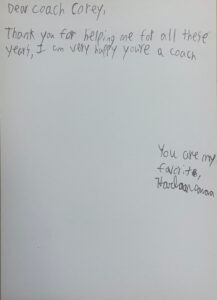 Dear Coach Corey,
Thank you for helping me for all these
years, I am very happy you're a coach
You are my
favorite,